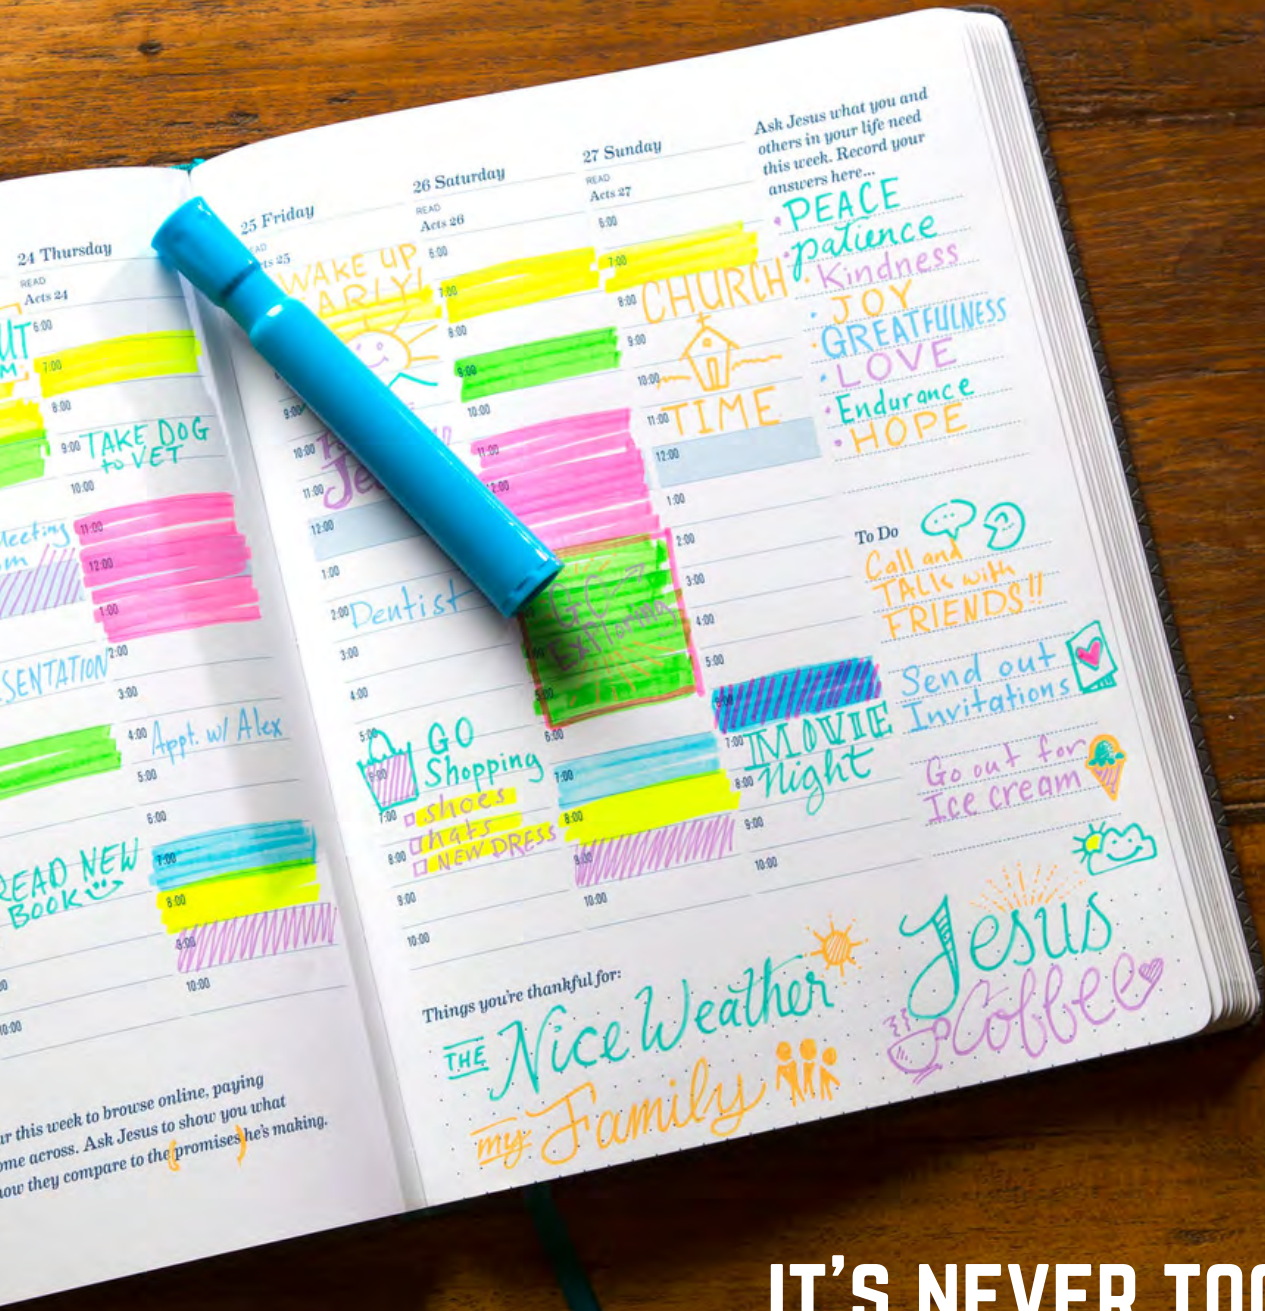 24 Thursday
READ
Acts 24
6:00
7:00
8:00
9:00 TAKE DOG
to VET
10:00
11:00
12:00
1:00
2:00
3:00
4:00 Appt. w/ Alex
5:00
6:00
7:00
8:00
9:00
10:00
SENTATION
READ NEW
BOOK
10:00
this week to browse online, paying
across. Ask Jesus to show you what
how they compare to the (promises) he's making.
25 Friday
WAKE UP
EARLY!
9:00
10:00
11:00
12:00
1:00
2:00 Dentist
3:00
4:00
5:00
GO
6:00 Shopping
7:00 shoes
hats
8:00 NEW DRESS
9:00
10:00
26 Saturday
READ
Acts 26
6:00
7:00
8:00
9:00
10:00
11:00
12:00
GO
Exploring
5:00
6:00
7:00
8:00
9:00
10:00
27 Sunday
READ
Acts 27
6:00
7:00
8:00 CHURCH
9:00
10:00
11:00 TIME
12:00
1:00
2:00
3:00
4:00
5:00
6:00
7:00 MOVIE
8:00 Night
9:00
10:00
Ask Jesus what you and
others in your life need
this week. Record your
answers here...
• PEACE
• patience
• Kindness
• JOY
• GREATFULNESS
• LOVE
• Endurance
• HOPE
To Do
Call and
TALK with
FRIENDS!!
Send out
Invitations
Go out for
Ice cream
Things you're thankful for:
THE Nice Weather
my Family
Jesus
Coffee
IT'S NEVER TOO